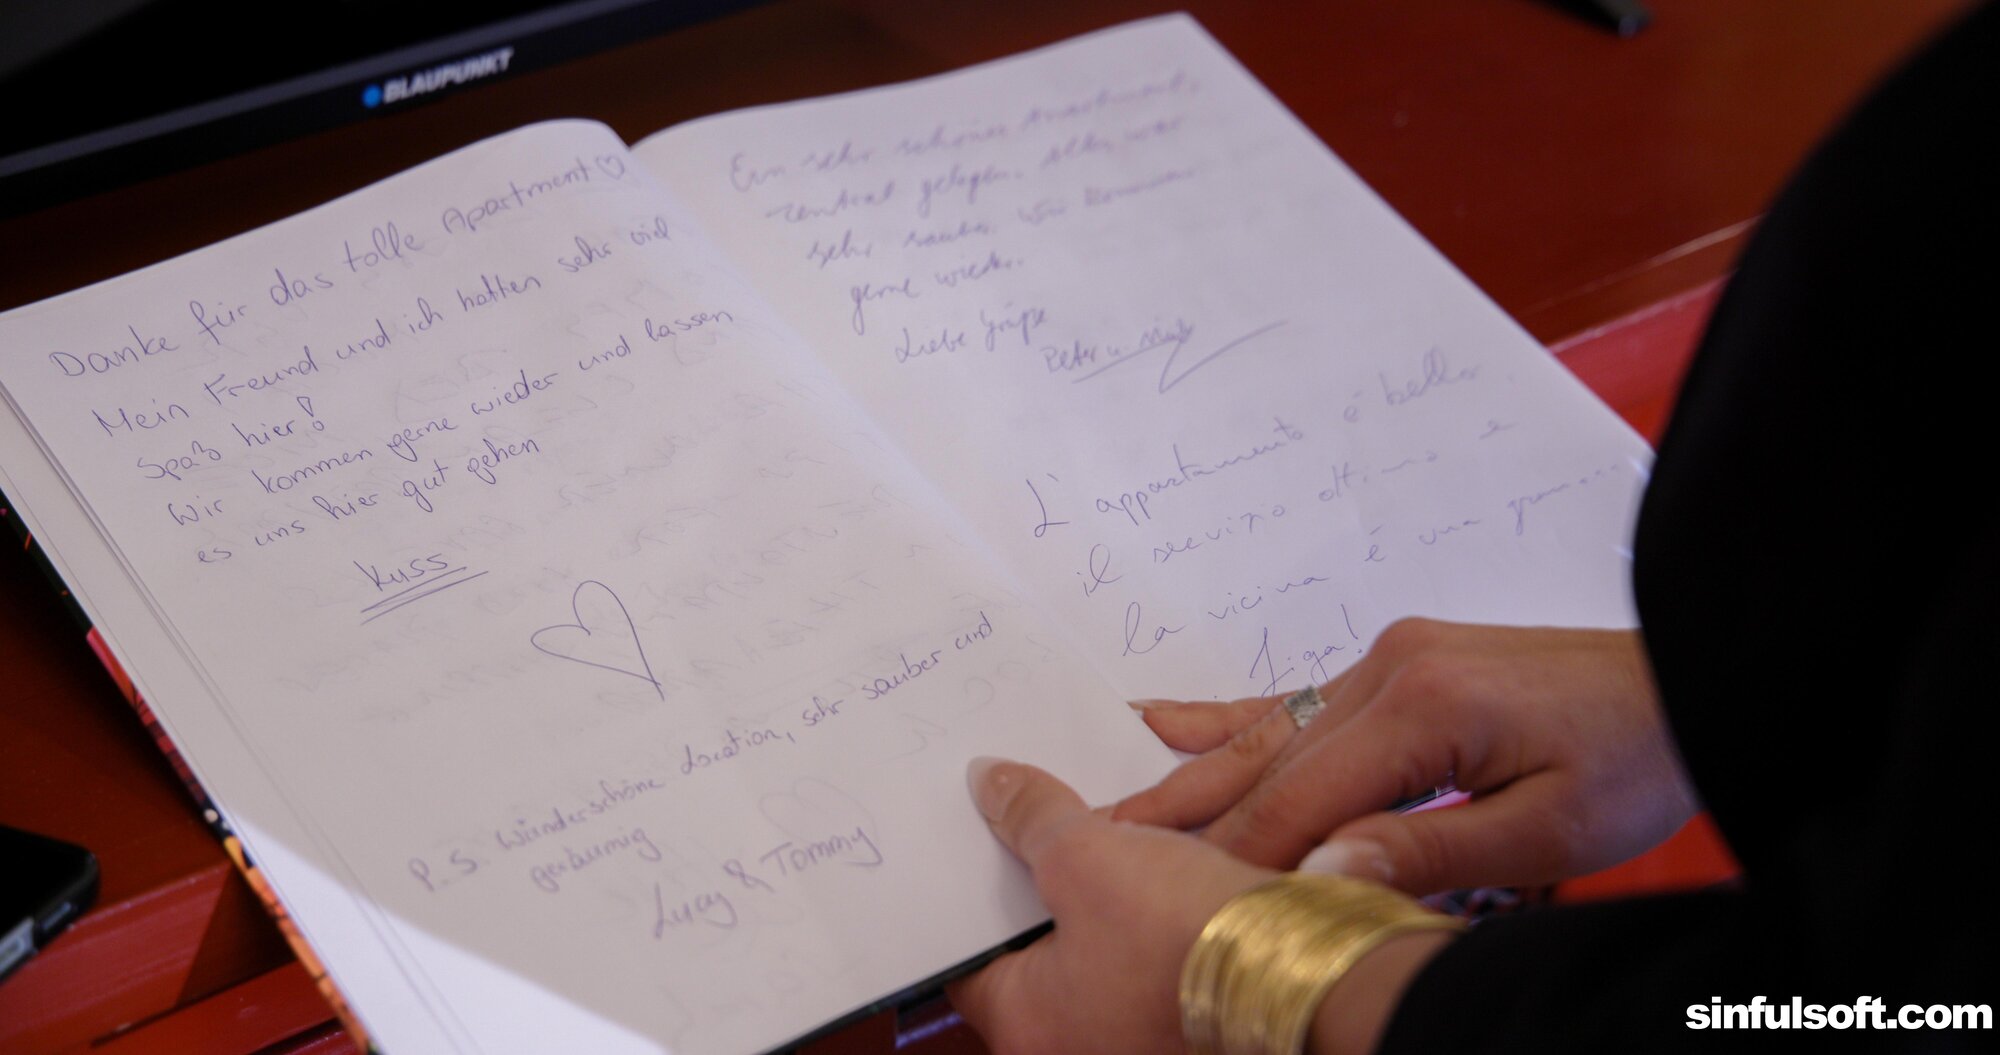 BLAUPUNKT
Danke für das tolle Apartment ♡
Mein Freund und ich hatten sehr viel
Spaß hier!
Wir kommen gerne wieder und lassen
es uns hier gut gehen
Kuss
P.S. Wunderschöne Location, sehr sauber und
geräumig
Lucy & Tommy
Ein sehr schönes Apartment,
zentral gelegen. Alles war
sehr sauber. Wir kommen
gerne wieder.
Liebe Grüße
Peter u.
L'appartamento è bello
il servizio ottimo e
la vicina è una
figa!
sinfulsoft.com